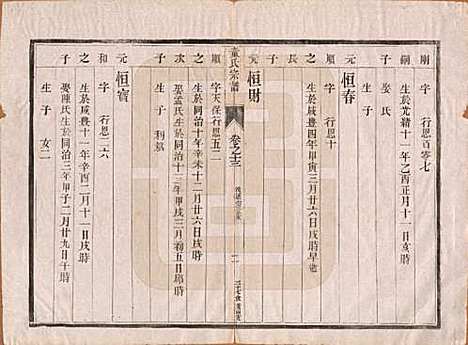 剛 字 行恩百零七
之 生於光緒十一年乙酉正月十一日亥時
子 娶氏
生子
元 恒春
字 行恩十
順 生於咸豐四年甲寅三月廿六日戌時早逝
元 恒財
順 字天保行恩五二
之 生於同治十年辛未十二月廿六日戌時
次 娶孟氏生於同治十三年甲戌三月初五日卯時
子 生子
童氏宗譜
卷之十三
元 恒寶
和 字 行恩二六
之 生於咸豐十一年辛酉二月十一日戌時
子 娶陳氏生於同治三年甲子二月廿九日午時
生子 女二